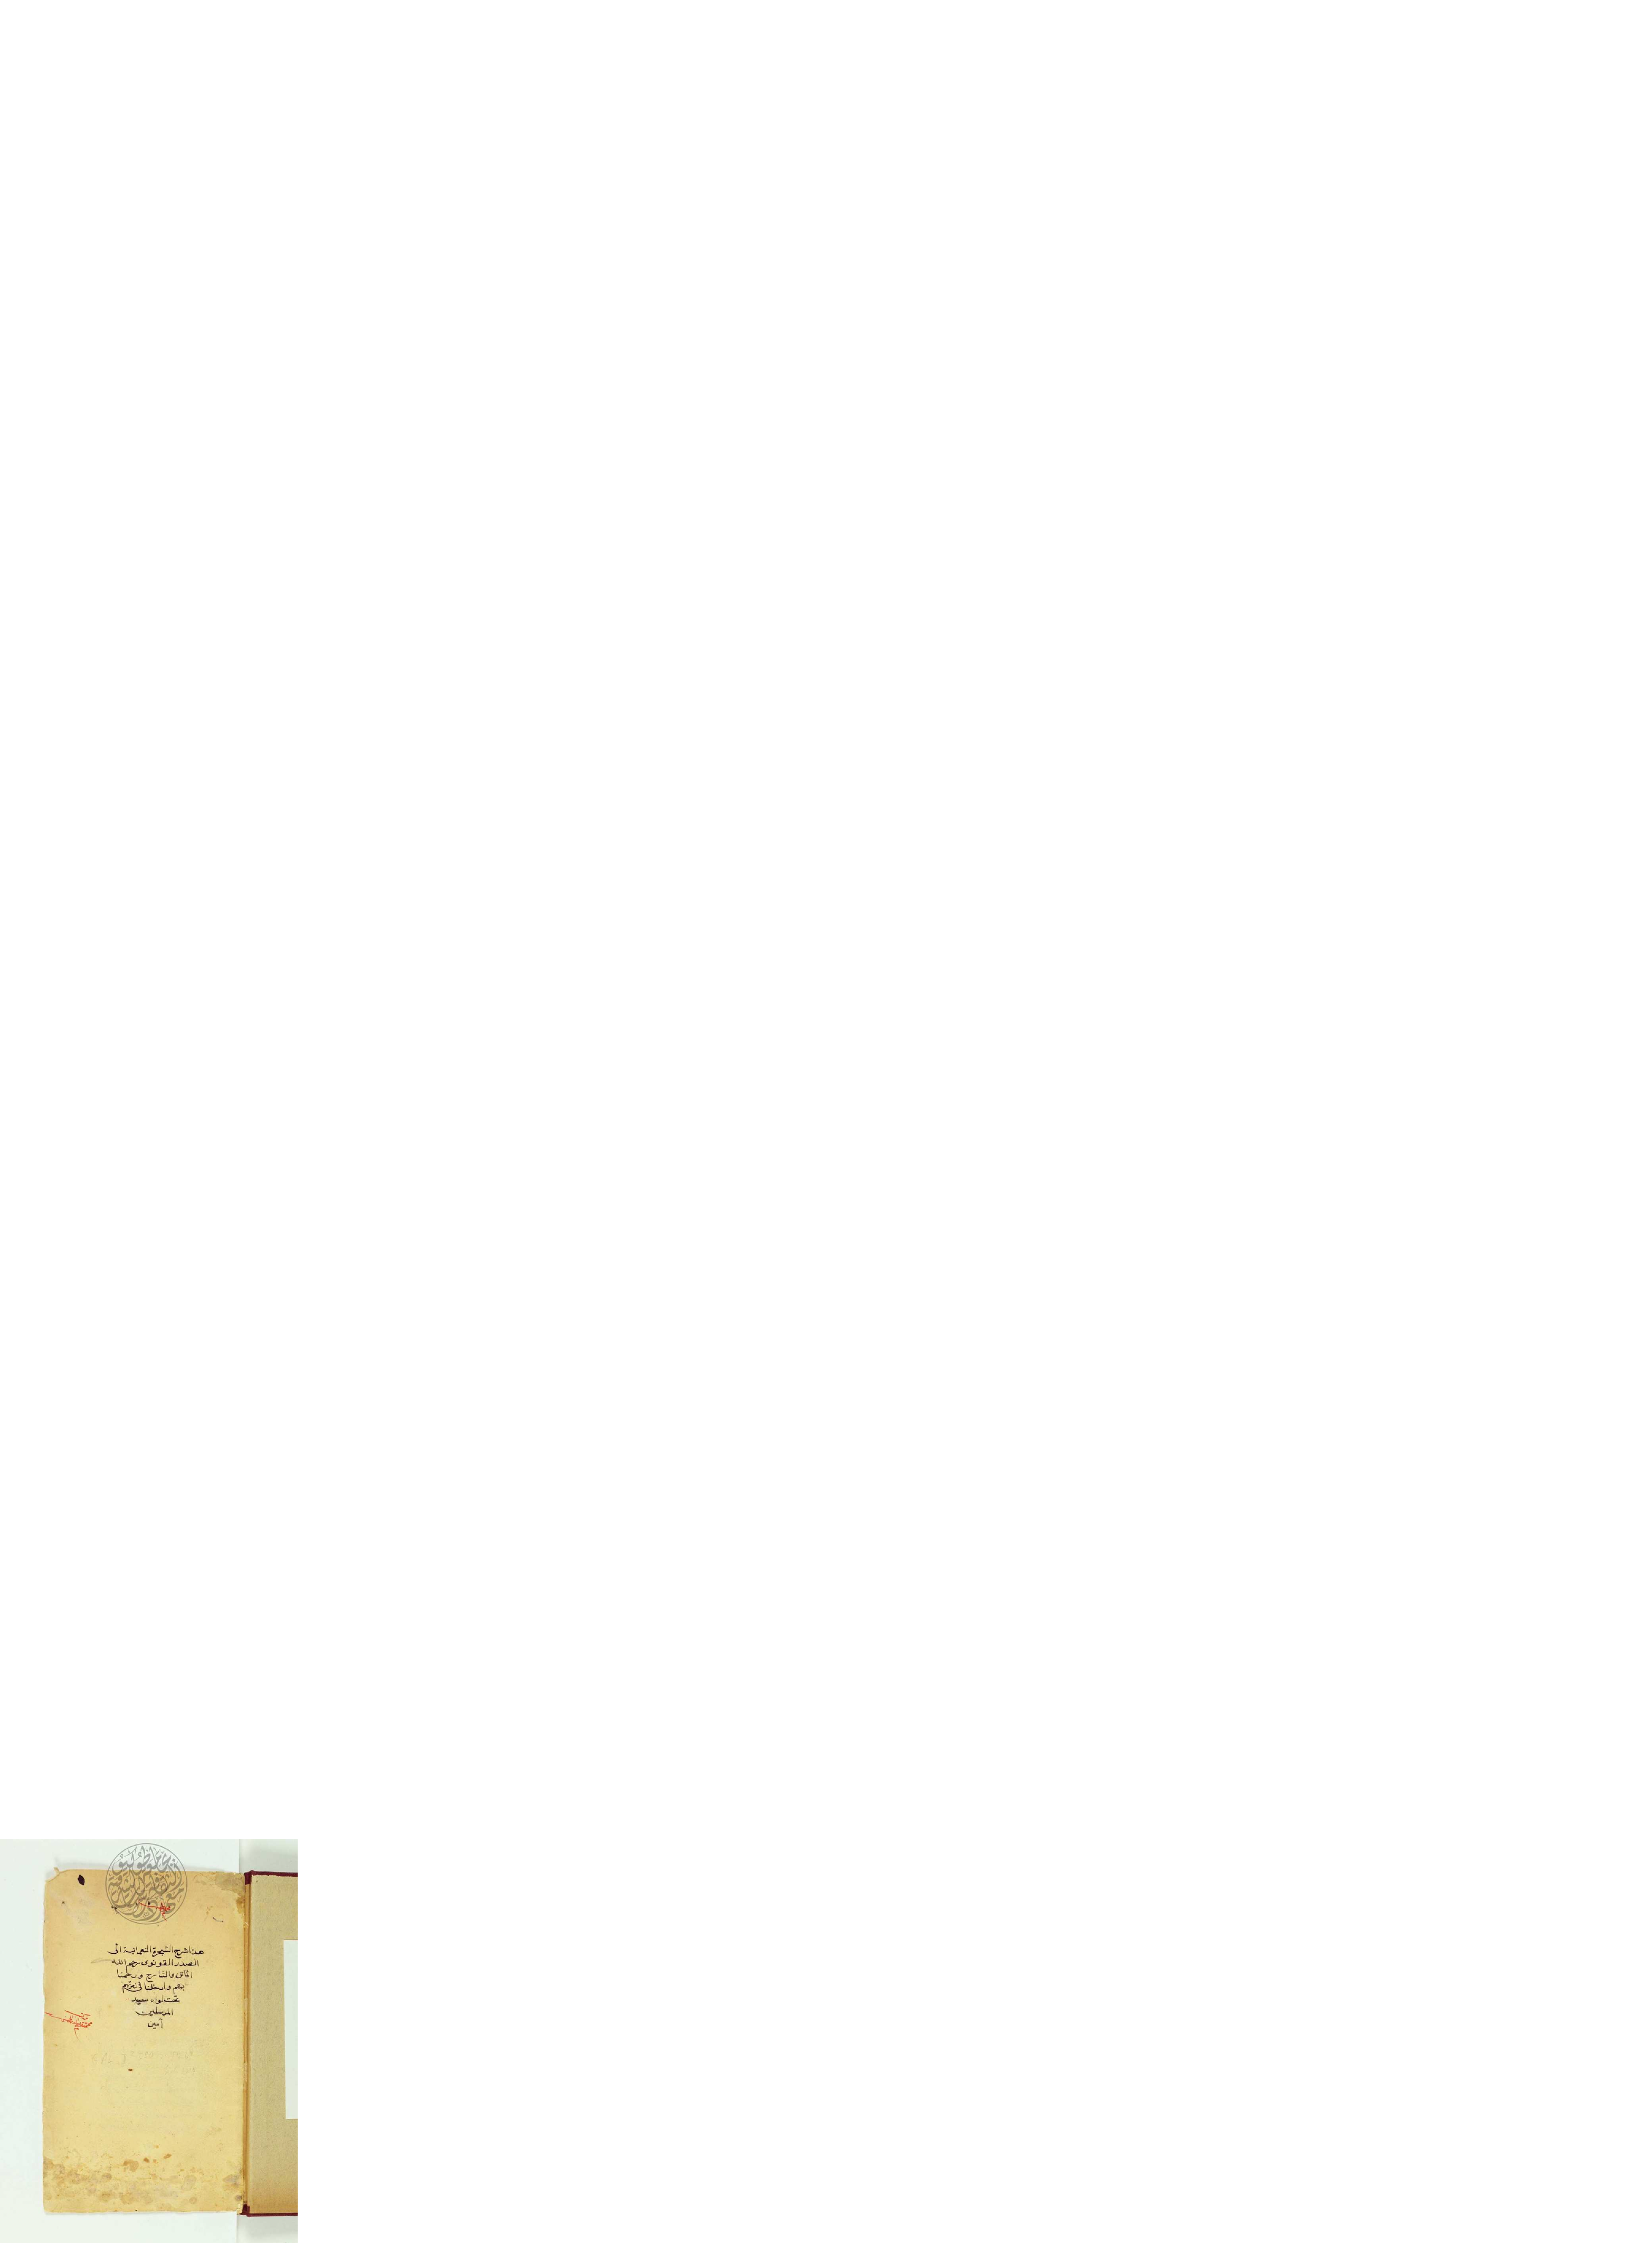 هذا شرح الشجرة النعمانية الى
الصدر القونوى رحم الله
الماتن والشارح ورحمنا
بهم وادخلنا فى زمرتهم
تحت لواء سيد
المرسلين
آمين